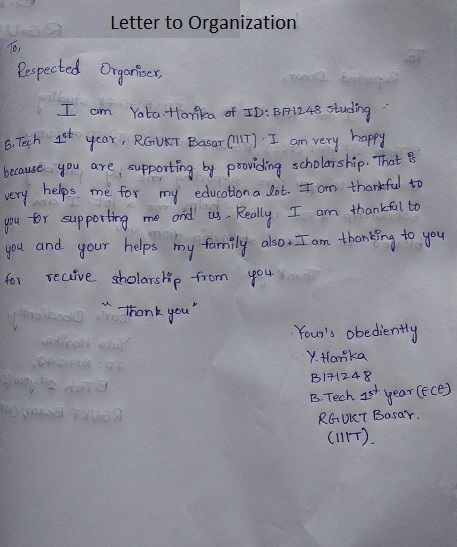 Letter to Organization
To,
Respected Organiser,
I am Yata Harika of ID: B171248 studing
B.Tech 1st year, RGUKT Basar (IIIT). I am very happy
because you are supporting by providing scholarship. That is
very helps me for my education a lot. I am thankful to
you for supporting me and us. Really I am thankful to
you and your helps my family also. I am thanking to you
for recive sholarship from you.
"Thank you"
Your's obediently
Y. Harika
B171248
B.Tech 1st year (ECE)
RGUKT Basar.
(IIIT).